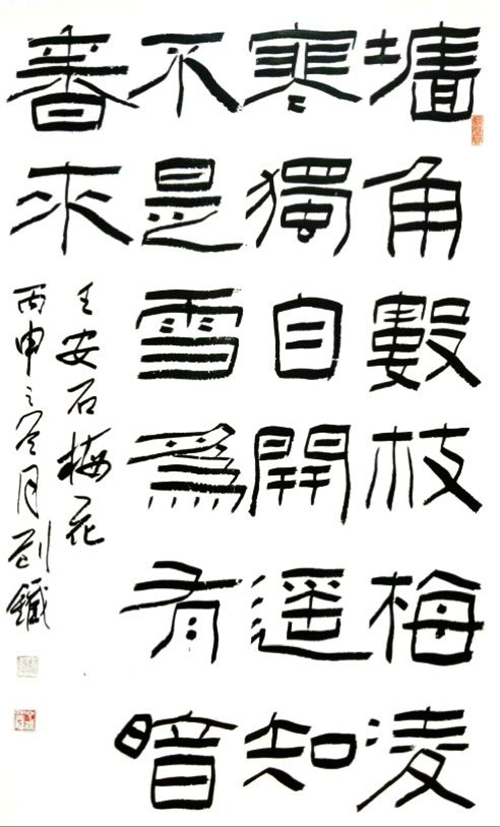 墻角數枝梅凌
寒獨自開遥知
不是雪為有暗
香來
王安石梅花
丙申之冬月